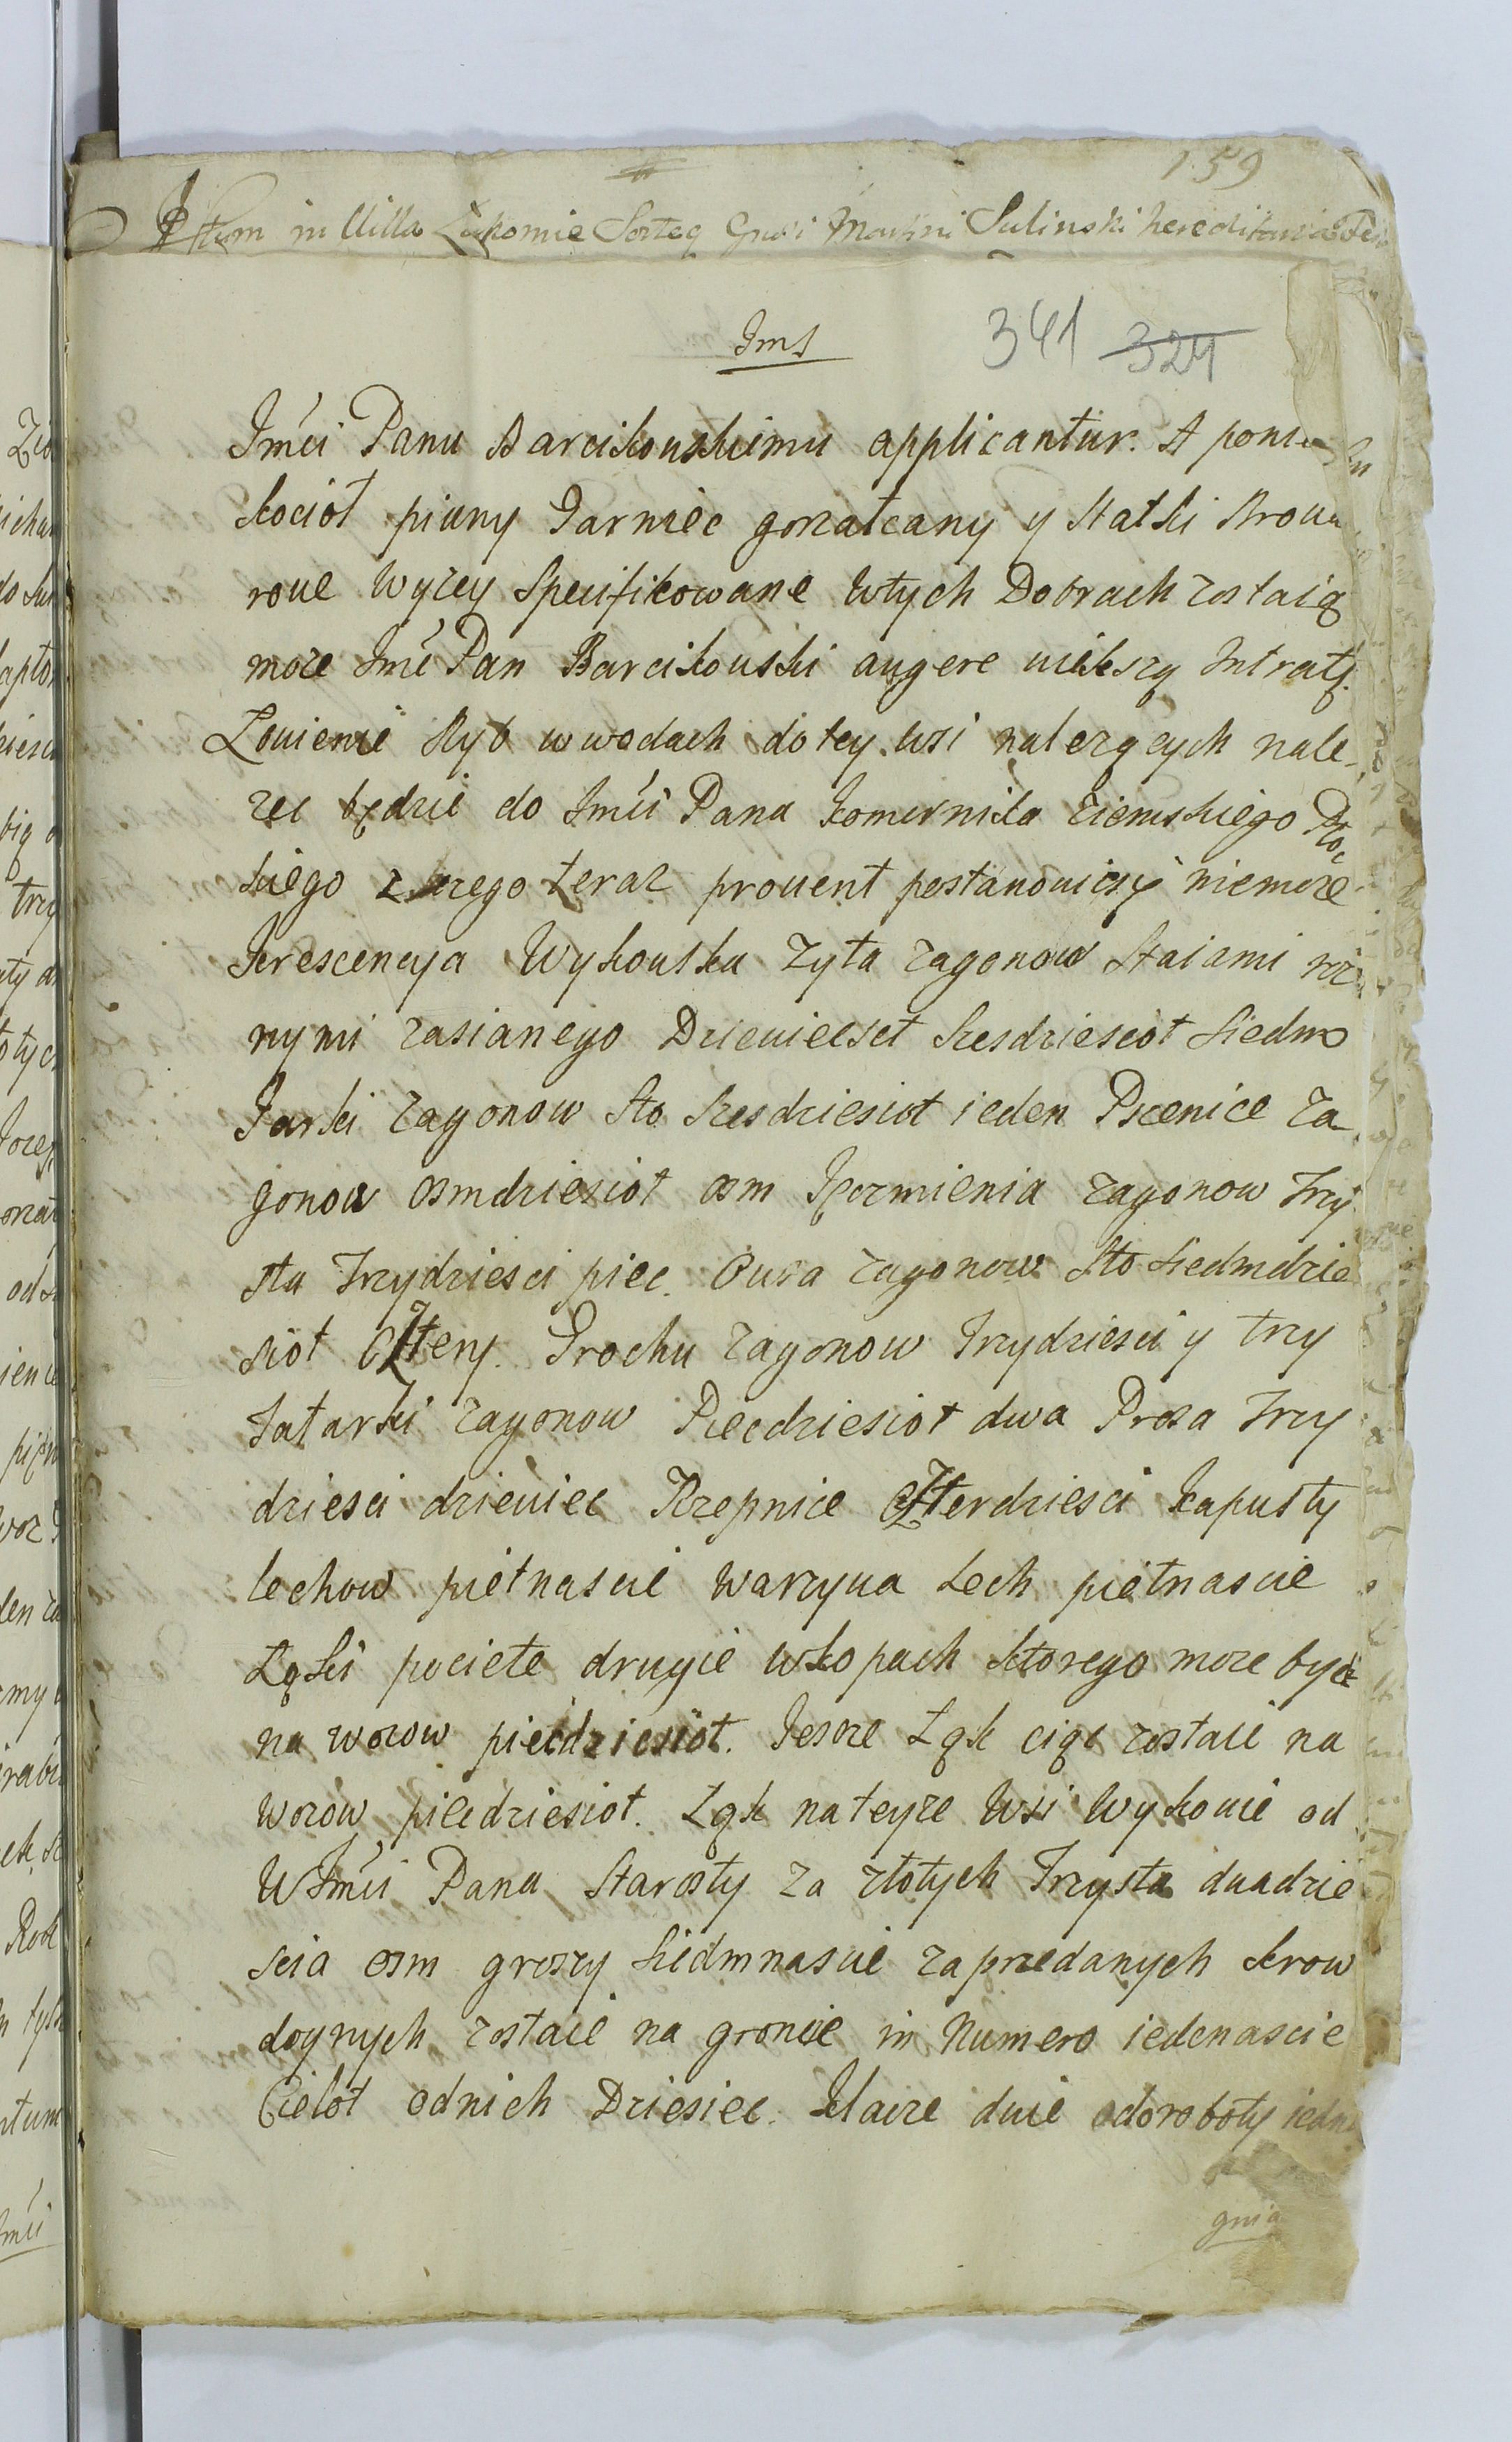 159
Actum in Villa Łukomie Sorteq Gnsi Martini Sulinski hereditaria Fe
Jms
341 324
Jmći Panu Barcikouskimu applicantur. A ponie
kocioł piuny Garniec gorzałcany y statki Broua
roue wyzey specifikowane wtych Dobrach zostaią
moze Jmć Pan Barcikouski augere niekszą Intratę.
Łouienie Ryb w wodach do tey wsi nalezących nale-
zec będzie do Jmći Pana komornika Ziemskiego Płoc
kiego z krego teraz prouent postanouicsię niemoze
krescencya Wykouska Zyta zagonow staiami roz
nymi zasianego Dzieuiecset szesdziesiot siedm
Jarki zagonow sto szesdziesiot ieden Pszenice za
gonow osmdziesiot osm Jęczmienia zagonow Trzy
sta Trzydziesci piec. Ousa zagonow sto siedmdzie
siot cztery. Grochu zagonow Trzydziesci y trzy
Tatarki zagonow Piecdziesiot dwa Prosa Trzy
dziesci dzieuiec Rzepnice czterdziesci kapusty
lechow pietnascie warzyua Lech pietnascie
Łąki pociete drugie wkopach ktorego moze bydz
na wozow piecdziesiot. Iesze Łąk ciąc zostaie na
wozow piecdziesiot. Łąk nateyze Wsi Wykouie od
WJmći Pana Starosty za złotych Trzysta duadzie
scia osm groszy siedmnascie zaprzedanych krow
doynych zostaie na groncie in Numero iedenascie
Cielot odnich Dziesiec. Klacze duie odoroboty iedna
gnia